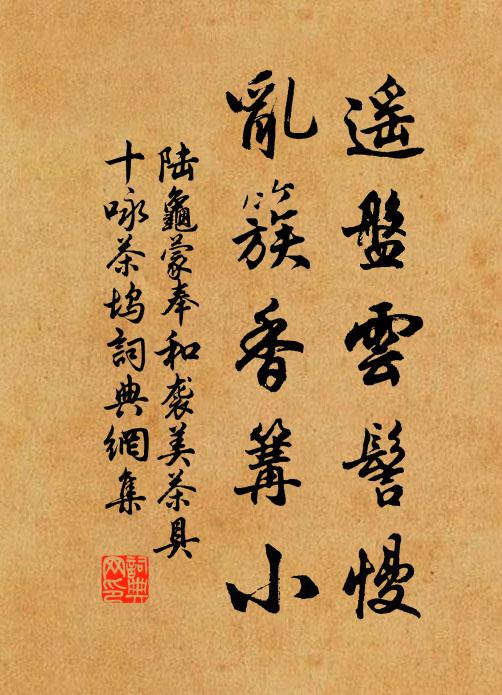 遥盤雲髻慢
亂簇香篝小
陸龜蒙奉和袭美茶具
十咏茶塢詞典網集
詞典网印